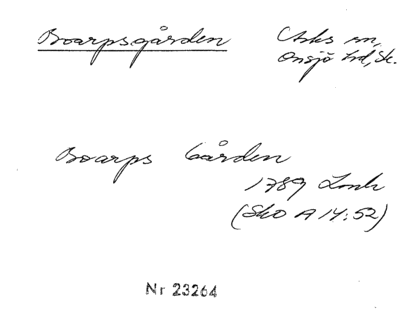 Boarpsgården Asks sn,
Onsjö hd, Sk.
Boarps Gården
1789 Lmk
(Sko A 14:52)
Nr 23264